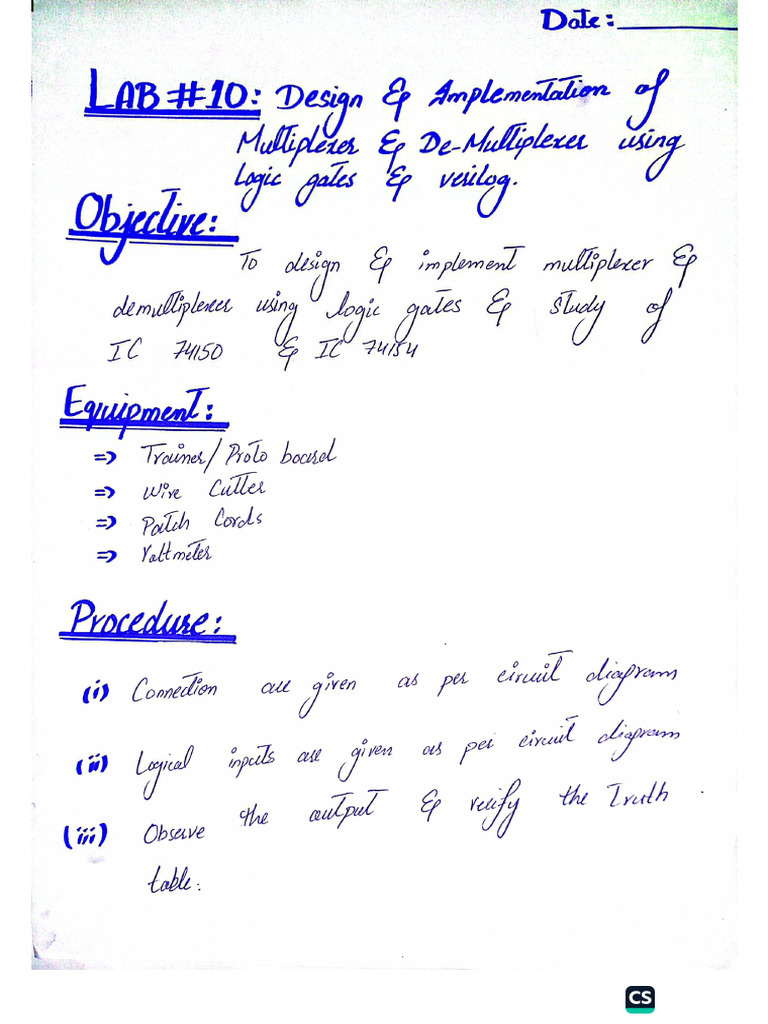 Date:
LAB#10: Design & Implementation of
Multiplexer & De-Multiplexer using
Logic gates & verilog.
Objective:
To design & implement multiplexer &
demultiplexer using logic gates & study of
IC 74150 & IC 74154
Equipment:
=> Trainer/Proto board
=> Wire Cutter
=> Patch Cords
=> Voltmeter
Procedure:
(i) Connection are given as per circuit diagram
(ii) Logical inputs are given as per circuit diagram
(iii) Observe the output & verify the Truth
table.
CS